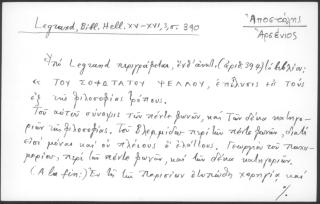 Legrand, Bibl. Hell. XV-XVI, 3, σ. 390
Ἀποστόλης
Ἀρσένιος
Ὑπὸ Legrand περιγράφεται, (ἀριθ. 394) βιβλίον:
« ΤΟΥ ΣΟΦΩΤΑΤΟΥ ΨΕΛΛΟΥ, ἐπίλυσις εἰς τοὺς
ἓξ τῆς φιλοσοφίας τρόπους.
Τοῦ αὐτοῦ σύνοψις τῶν πέντε φωνῶν, καὶ τῶν δέκα κατηγο-
ριῶν τῆς φιλοσοφίας. Τοῦ Βλεμμίδου περὶ τῶν πέντε φωνῶν, διατί
εἰσὶ μόναι καὶ οὐ πλείους ἢ ἐλάττους. Γεωργίου τοῦ παχυ-
μερίου, περὶ τῶν πέντε φωνῶν, καὶ τῶν δέκα κατηγοριῶν.
(A la fin:) Ἐν τῇ τῶν Παρισίων ἐτυπώθη χορηγίᾳ καὶ
%.